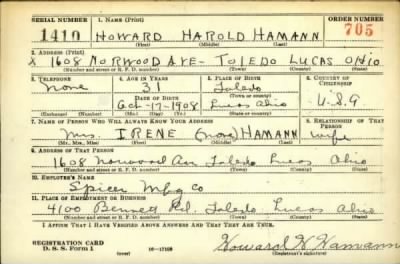 SERIAL NUMBER 1. NAME (Print) ORDER NUMBER
1410 HOWARD HAROLD HAMANN 705
(First) (Middle) (Last)
2. ADDRESS (Print)
X 1608 NORWOOD AVE- TOLEDO LUCAS OHIO
(Number and street or R. F. D. number) (Town) (County) (State)
3. TELEPHONE 4. AGE IN YEARS 5. PLACE OF BIRTH 6. COUNTRY OF CITIZENSHIP
None 31 Toledo
DATE OF BIRTH (Town or county)
Oct-17-1908 Lucas Ohio U.S.A
(Exchange) (Number) (Mo.) (Day) (Yr.) (State or country)
7. NAME OF PERSON WHO WILL ALWAYS KNOW YOUR ADDRESS 8. RELATIONSHIP OF THAT PERSON
Mrs. IRENE (none) HAMANN wife
(Mr., Mrs., Miss) (First) (Middle) (Last)
9. ADDRESS OF THAT PERSON
1608 Norwood Av Toledo Lucas Ohio
(Number and street or R. F. D. number) (Town) (County) (State)
10. EMPLOYER'S NAME
Spicer Mfg Co
11. PLACE OF EMPLOYMENT OR BUSINESS
4100 Bennett Rd. Toledo Lucas Ohio
(Number and street or R. F. D. number) (Town) (County) (State)
I AFFIRM THAT I HAVE VERIFIED ABOVE ANSWERS AND THAT THEY ARE TRUE.
REGISTRATION CARD
D. S. S. Form 1 16-17105 Howard H Hamann
(over) (Registrant's signature)